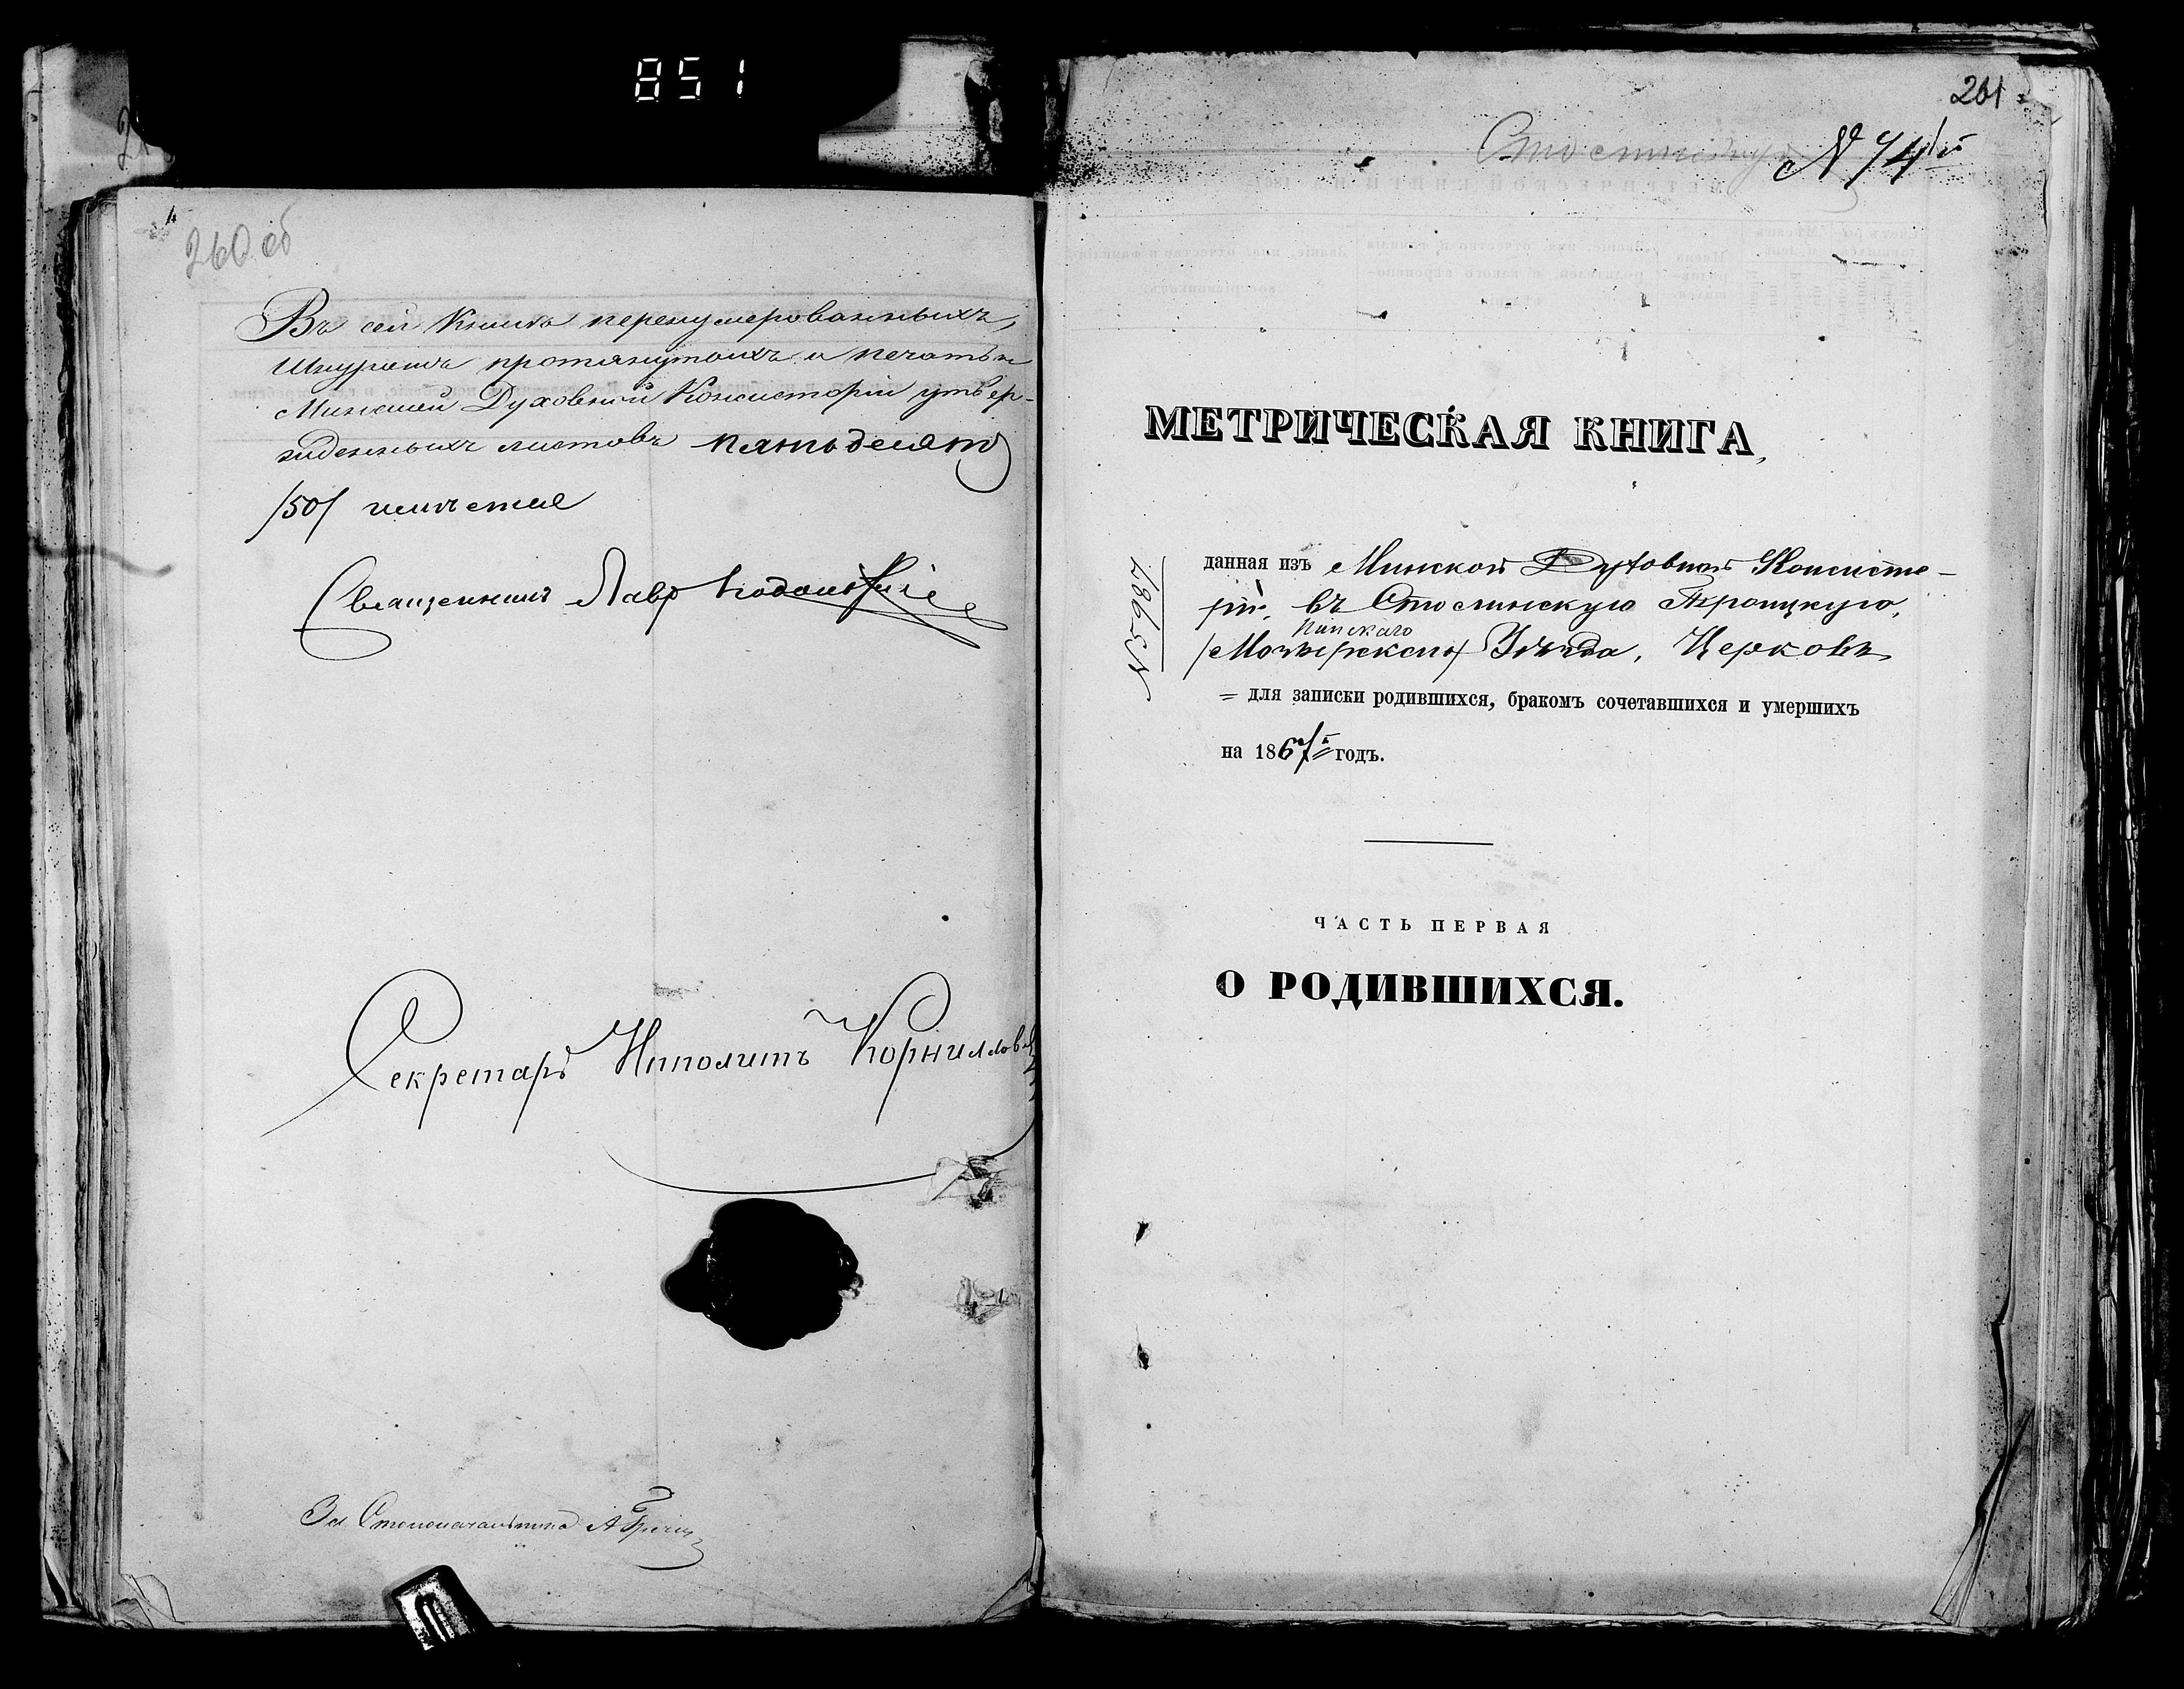 851
260 об
Въ сей Книгѣ перенумерованныхъ,
Шнуромъ протянутыхъ и печатью
Минской Духовной Консисторіи утвер-
жденныхъ листовъ пятьдесятъ
/50/
Священникъ Лавр
Секретарь Ипполитъ Корнилов
За Столоначальника А
261
№ 74й
МЕТРИЧЕСКАЯ КНИГА,
данная изъ Минской Духовной Консисто-
ріи, въ Столинскую Троицкую,
Пинскаго
/Мозырскаго/ Уѣзда, Церковь
= для записки родившихся, бракомъ сочетавшихся и умершихъ
на 1867й годъ.
ЧАСТЬ ПЕРВАЯ
О РОДИВШИХСЯ.